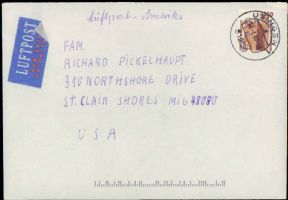 Luftpost - Amerika
LUFTPOST
USINGEN
FAM.
RICHARD PICKELHAUPT
310 NORTHSHORE DRIVE
ST. CLAIR SHORES MIG 48080
USA